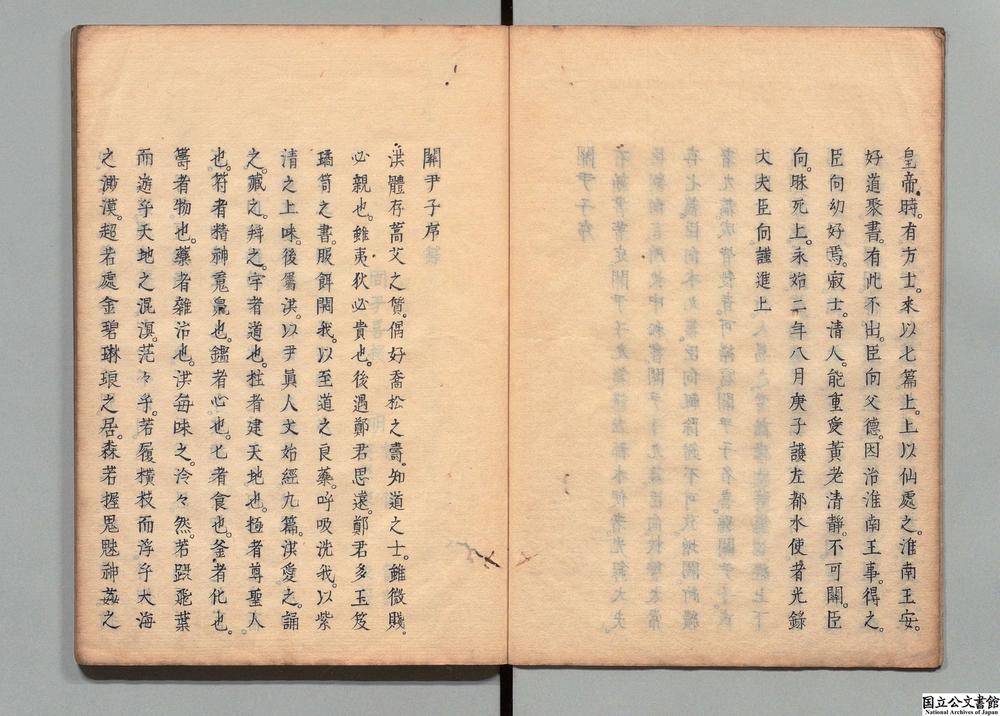 皇帝時。有方士。來以七篇。上。上以仙處之。淮南王安。
好道聚書。有此不出。臣向父德。因治淮南王事。得之。
臣向幼好焉。寂士。清人。能重愛黃老清靜。不可闕。臣
向昧死上。永始二年八月庚子護左都水使者光錄
大夫臣向謹進上
關尹子序
洪體存蒿艾之質。偶好喬松之壽。知道之士。雖微賤。
必親也。雖夷狄必貴也。後遇鄭君思遠。鄭君多玉笈
瓊笥之書。服餌開我。以至道之良藥。呼吸洗我。以紫
清之上味。後屬洪。以尹眞人文始經九篇。洪愛之。誦
之。藏之。拜之。宇者道也。柱者建天地也。極者尊聖人
也。符者精神魂魄也。鑑者心也。匕者食也。釜者化也。
籌者物也。藥者雜治也。洪每味之。泠々然。若躡飛葉
而遊乎天地之混溟。茫々乎。若履橫杖而浮乎大海
之渺漠。超若處金碧琳琅之居。森若握鬼魅神姦之
国立公文書館
National Archives of Japan